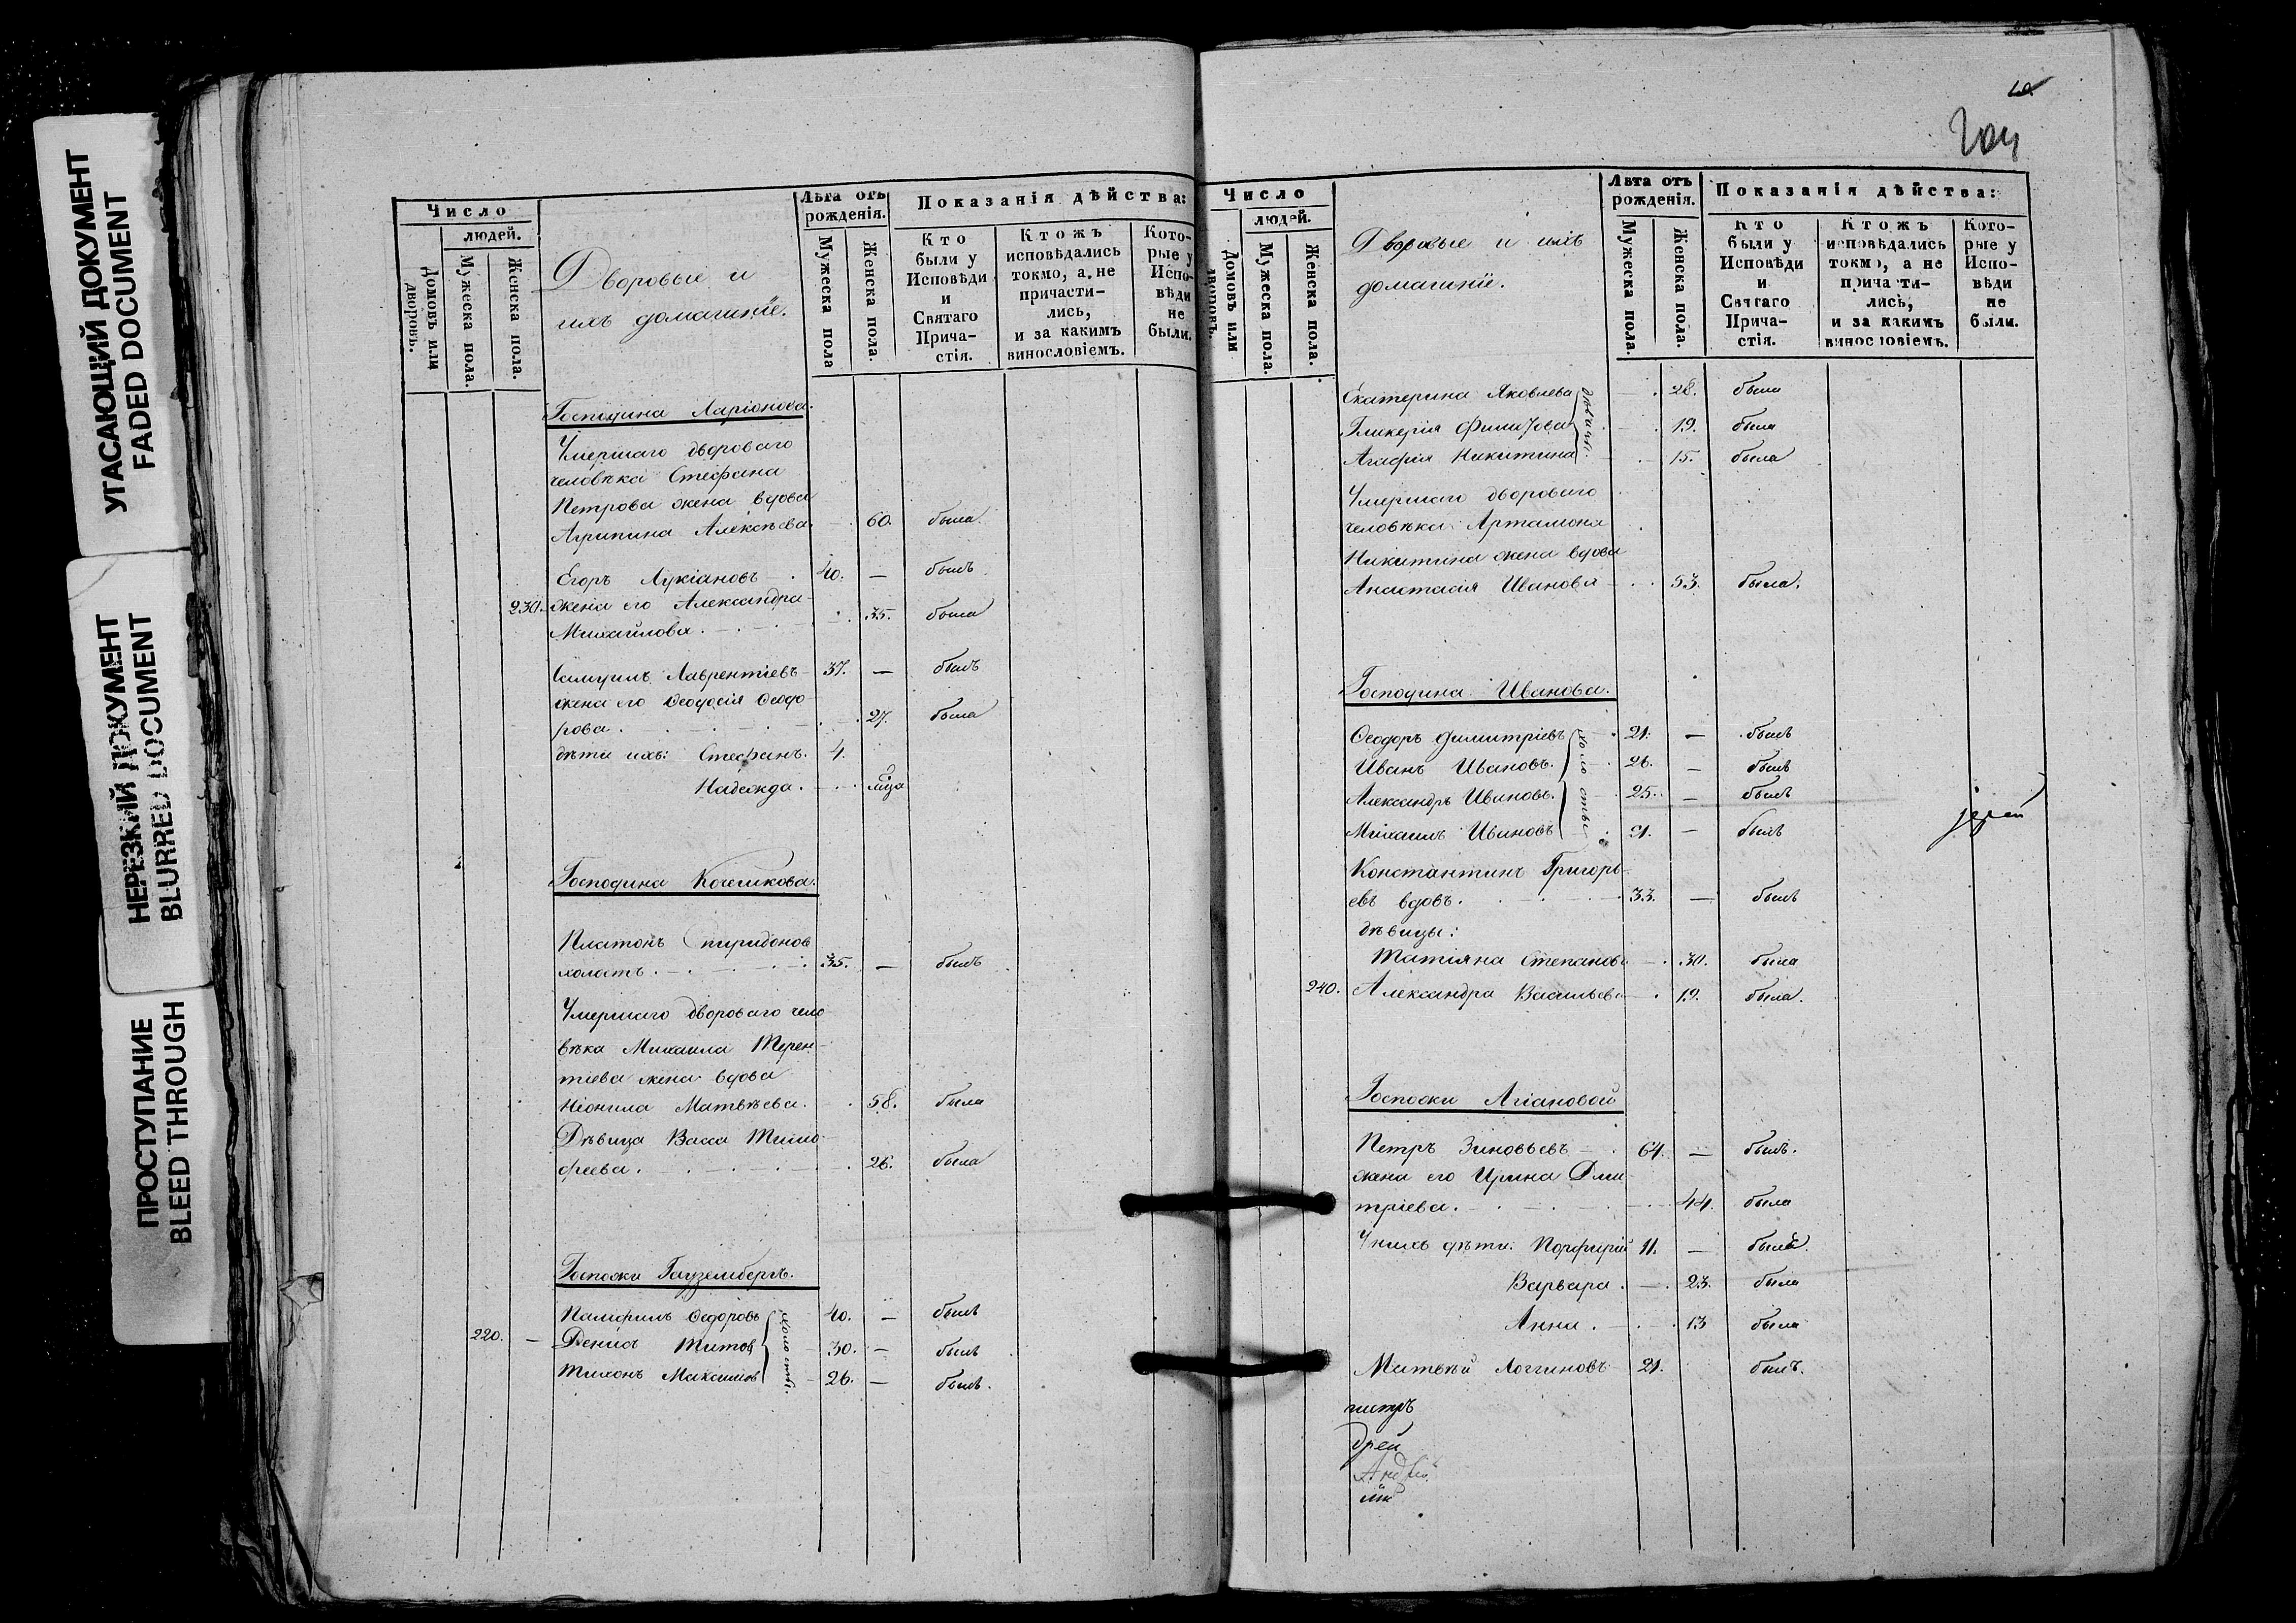 УГАСАЮЩИЙ ДОКУМЕНТ
FADED DOCUMENT
НЕРЕЗКИЙ ДОКУМЕНТ
BLURRED DOCUMENT
ПРОСТУПАНИЕ
BLEED THROUGH
Число
людей.
Домовъ или дворовъ.
Мужеска пола.
Женска пола.
Дворовые и
ихъ домашніе.
Лѣта отъ рожденія.
Мужеска пола
Женска пола.
Показанія дѣйства:
Кто были у Исповѣди и Святаго Прича-стія.
Ктожъ исповѣдались токмо, а не причасти-лись, и за какимъ винословіемъ.
Кото-рые у Испо-вѣди не были.
Господина Ларіонова.
Умершаго двороваго
человѣка Стефана
Петрова жена вдова
Агрипина Алексѣева. 60. была.
Егоръ Лукіановъ 40. — былъ
230. жена его Александра
Михайлова. 35. была
Самуилъ Лаврентіевъ 37. — былъ
жена его Ѳеодосія Ѳеодо-
рова. 27. была
дѣти ихъ: Стефанъ. 4.
Надежда.
Господина Кочешкова.
Платонъ Спиридонов
холостъ. 35. — былъ
Умершаго двороваго чело-
вѣка Михаила Терен-
тіева жена вдова
Неонила Матвѣева. 58. была
Дѣвица Васса Тимо-
феева. 26. была
Госпожи Гаузембергъ.
Памфилъ Ѳедоровъ 40. — былъ
220. — Денисъ Титов 30. — былъ
Тихонъ Максимов 26. — былъ.
холосты.
204
Число
людей.
Домовъ или дворовъ.
Мужеска пола.
Женска пола.
Дворовые и ихъ
домашніе.
Лѣта отъ рожденія.
Мужеска пола.
Женска пола.
Показанія дѣйства:
Кто были у Исповѣди и Святаго Прича-стія.
Ктожъ исповѣдались токмо, а не причасти-лись, и за какимъ винословіемъ.
Кото-рые у Испо-вѣди не были.
Екатерина Яковлева 28. была
Гликерія Филипова 19. была
Агафія Никитина 15. была
дѣвицы.
Умершаго двороваго
человѣка Артамона
Никитина жена вдова
Анастасія Иванова 53. была.
Господина Иванова.
Ѳеодоръ Димитріевъ 21. — былъ
Иванъ Ивановъ. 26. — былъ
Александръ Ивановъ. 25. — былъ
Михаилъ Ивановъ 21. — былъ
холосты
Константинъ Григорь-
евъ вдовъ. 33. — былъ
дѣвицы:
Татіяна Степанова 30. была
240. Александра Васильева 19. была.
Госпожи Агіановой
Петръ Зиновьевъ 64. — былъ.
жена его Ирина Дми-
тріева. 44. была
У нихъ дѣти: Порфирій 11. — былъ.
Варвара. 23. была
Анна. 13 была
Матвѣй Логгиновъ 21. былъ.
гистръ
дрей
Андрей